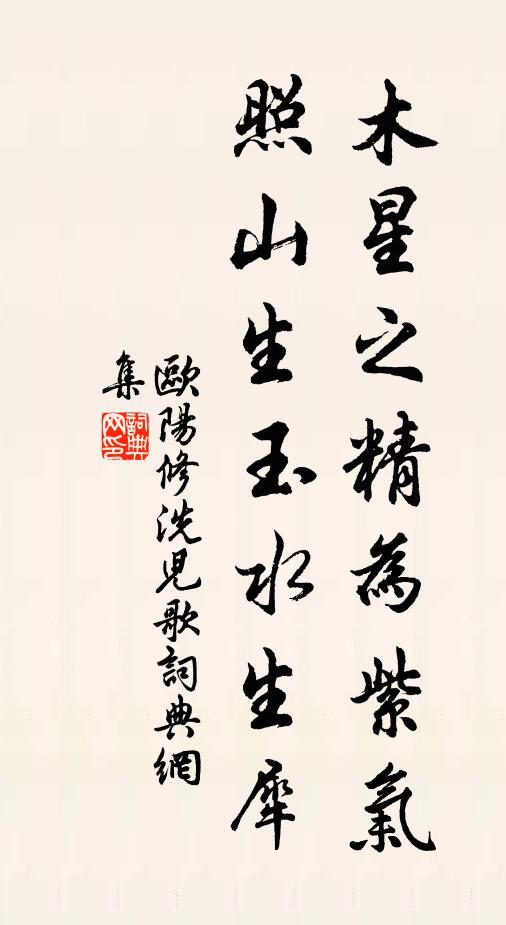 木星之精為紫氣
照山生玉水生犀
歐陽修洗兒歌詞典網
集
詞典
网印